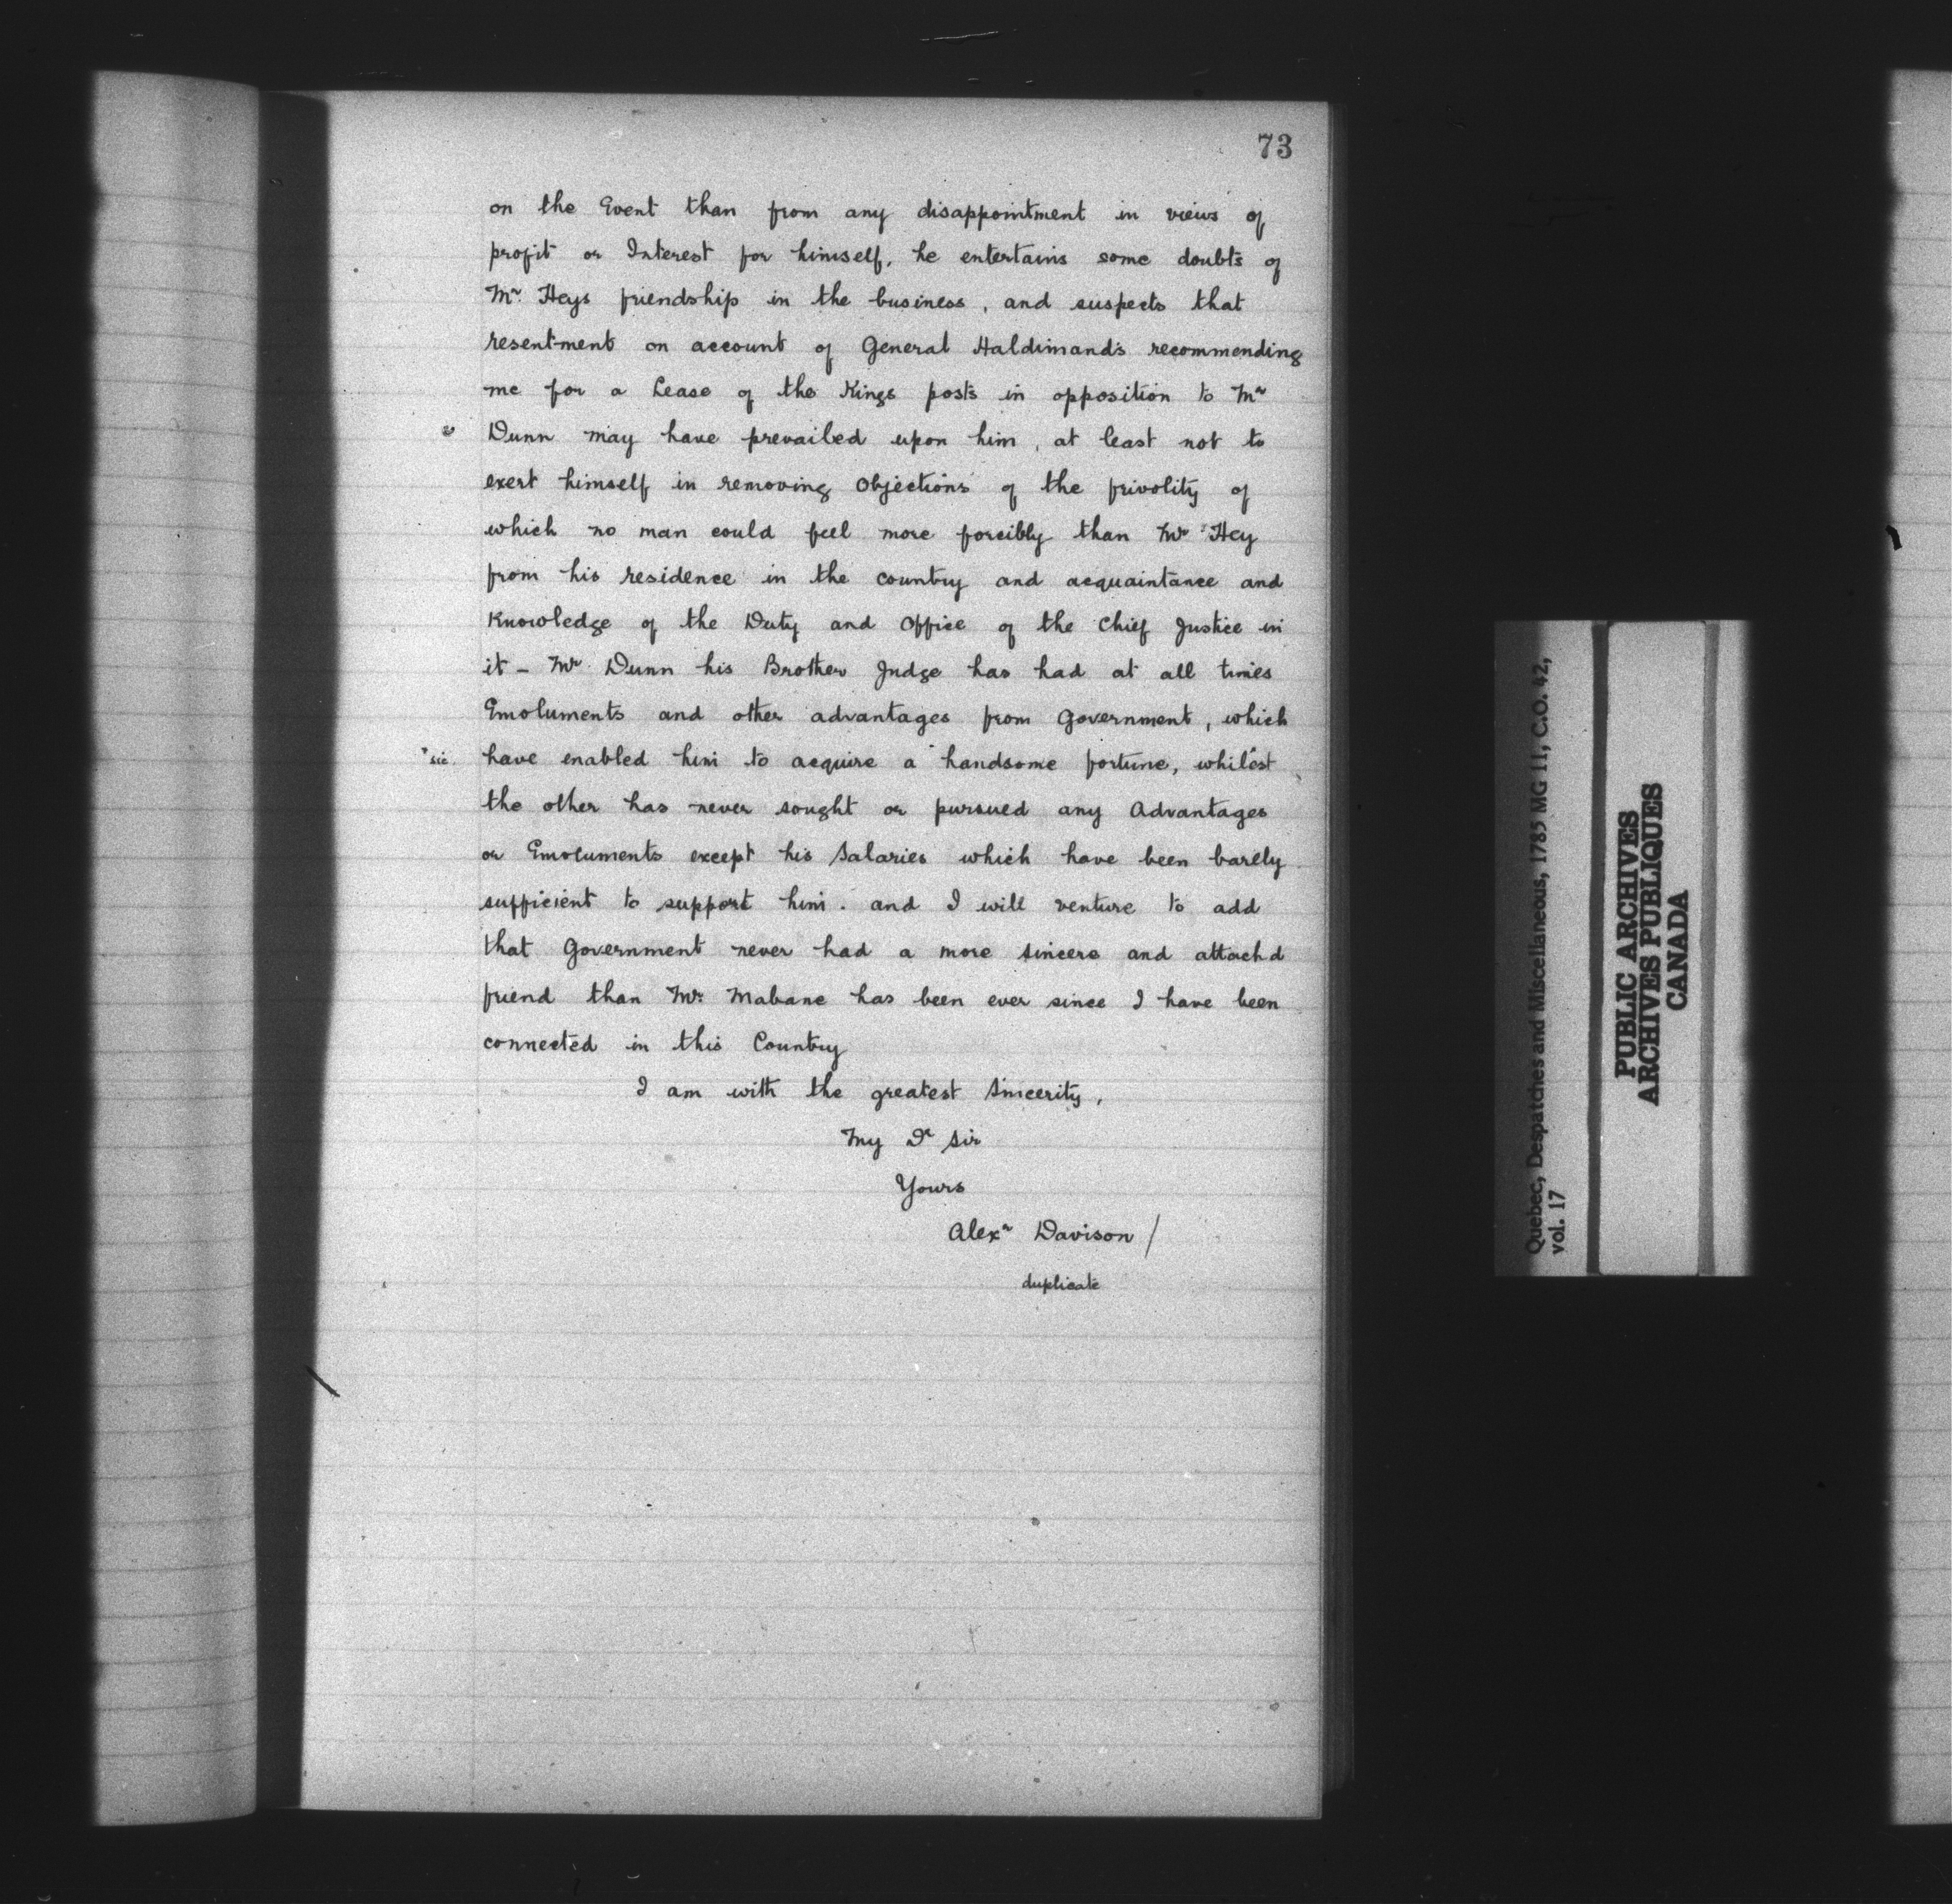 73
on the Event than from any disappointment in views of
profit or Interest for himself, he entertains some doubts of
Mr. Heys friendship in the business, and suspects that
resentment on account of General Haldimand's recommending
me for a Lease of the Kings posts in opposition to Mr
Dunn may have prevailed upon him, at least not to
exert himself in removing Objections of the frivolity of
which no man could feel more forcibly than Mr Hey
from his residence in the country and acquaintance and
Knowledge of the Duty and Office of the Chief Justice in
it - Mr. Dunn his Brother Judge has had at all times
Emoluments and other advantages from Government, which
"sic. have enabled him to acquire a handsome fortune, whilest
the other has never sought or pursued any Advantages
or Emoluments except his Salaries which have been barely
sufficient to support him. and I will venture to add
that Government never had a more sincere and attach'd
friend than Mr. Mabane has been ever since I have been
connected in this Country
I am with the greatest Sincerity,
My Dr Sir
Yours
Alexr Davison /
duplicate
Quebec, Despatches and Miscellaneous, 1785 MG 11, C.O. 42,
vol. 17
PUBLIC ARCHIVES
ARCHIVES PUBLIQUES
CANADA